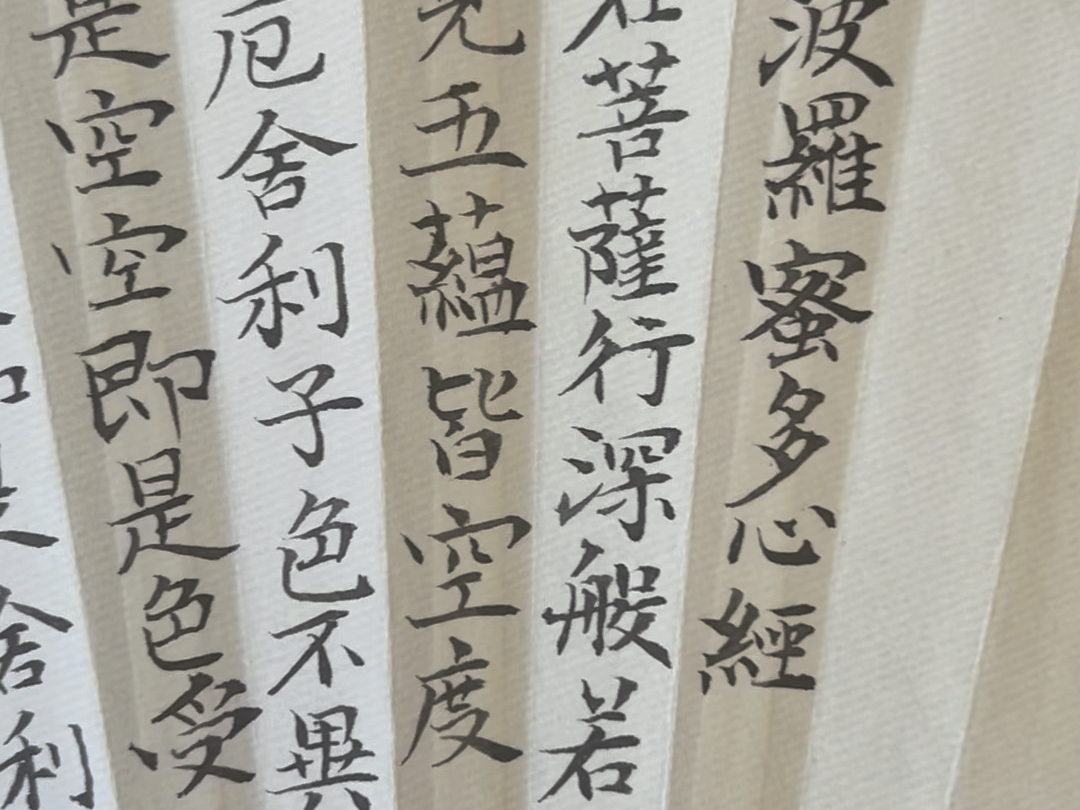 波羅蜜多心經
在菩薩行深般若
見五蘊皆空度
厄舍利子色不異
是空空即是色受
舍利